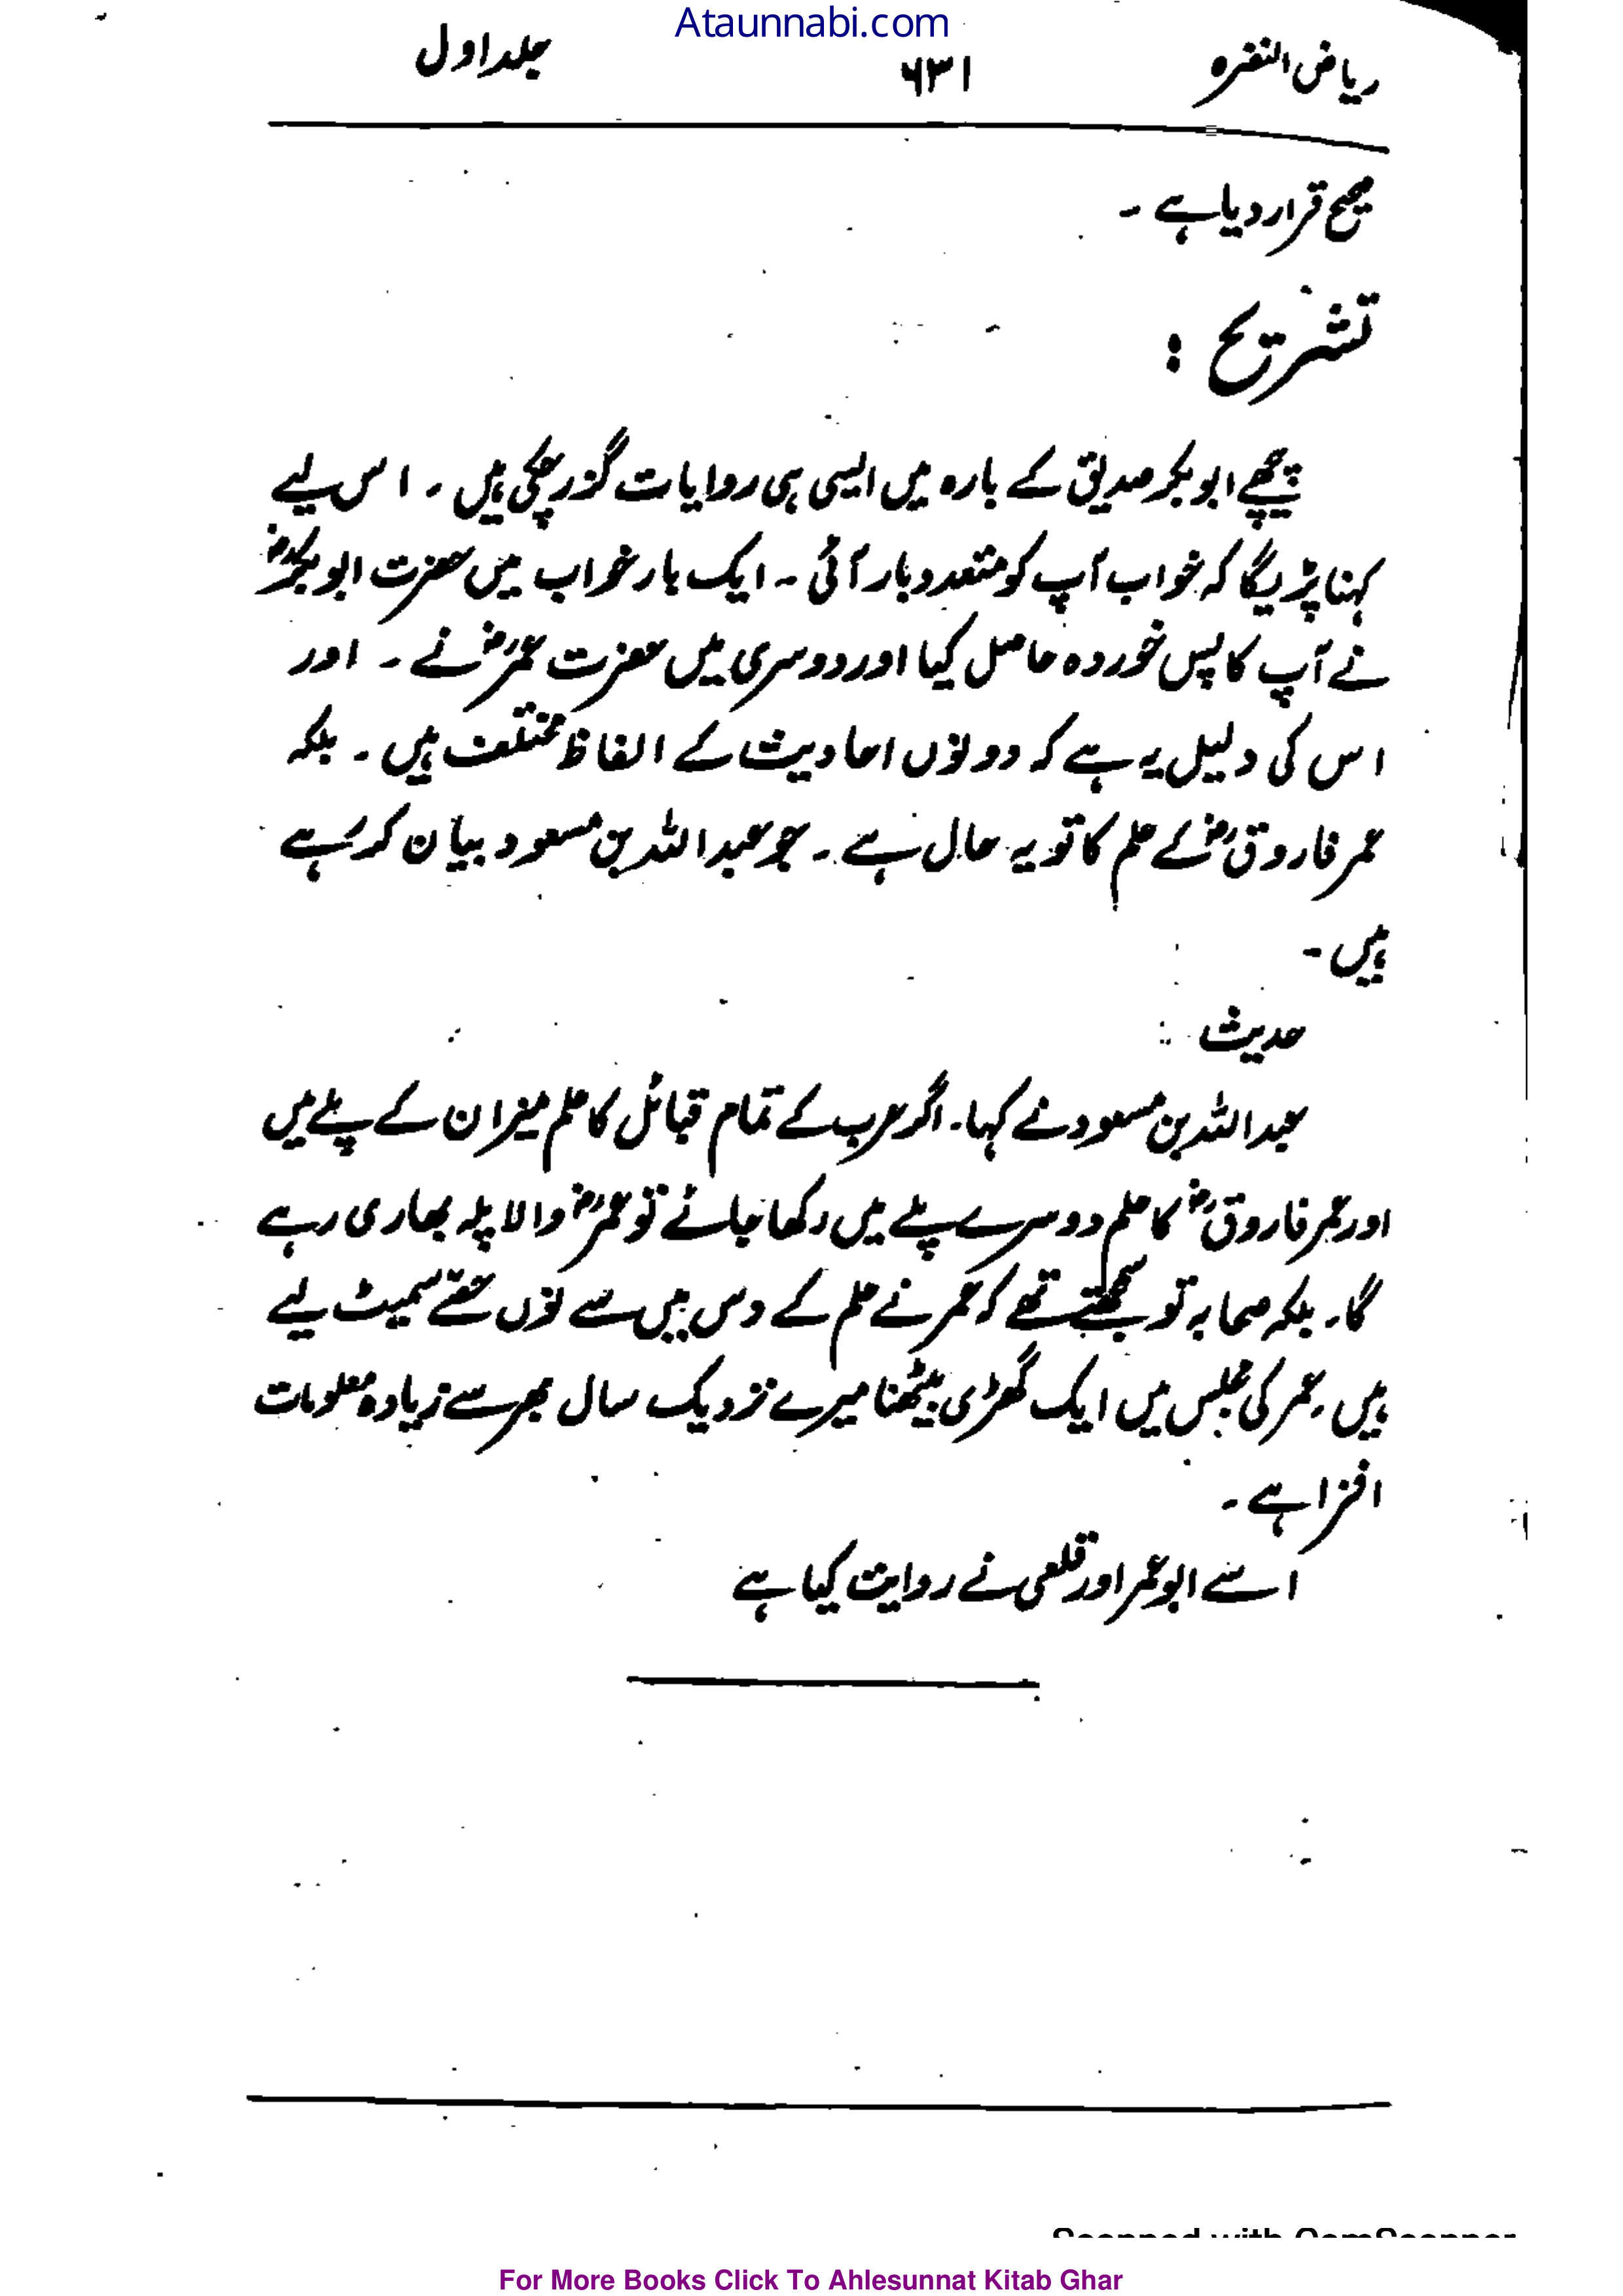 Ataunnabi.com
ریاض النضرہ ۶۳۱ جلد اول
صحیح قرار دیا ہے ۔
تشریح :
پیچھے ابوبکر صدیق کے بارہ میں ایسی ہی روایات گزر چکی ہیں ۔ اس لیے
کہنا پڑیگا کہ خواب آپ کو متعدد بار آئی ۔ ایک بار خواب میں حضرت ابوبکرؓ
نے آپ کا پس خوردہ حاصل کیا اور دوسری میں حضرت عمرؓ نے ۔ اور
اس کی دلیل یہ ہے کہ دونوں احادیث کے الفاظ مختلف ہیں ۔ بلکہ
عمر فاروقؓ کے علم کا تو یہ حال ہے ۔ جو عبداللہ بن مسعود بیان کر رہے
ہیں ۔
حدیث :
عبداللہ بن مسعود نے کہا ۔ اگر عرب کے تمام قبائل کا علم میزان کے پلے میں
اور عمر فاروقؓ کا علم دوسرے پلے میں رکھا جائے تو عمرؓ والا پلہ بھاری رہے
گا ۔ بلکہ صحابہ تو سمجھتے تھے کہ عمر نے علم کے دس میں سے نوں حصّے سمیٹ لیے
ہیں ۔ عمر کی مجلس میں ایک گھڑی بیٹھنا میرے نزدیک سال بھر سے زیادہ معلومات
افزا ہے ۔
اسے ابو عمر اور قلعی نے روایت کیا ہے
Scanned with CamScanner
For More Books Click To Ahlesunnat Kitab Ghar